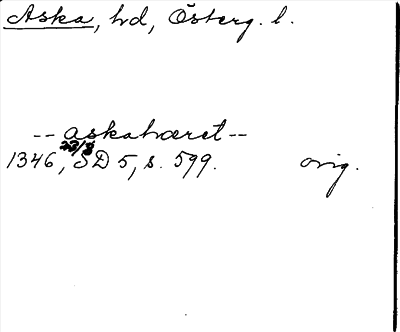 Aska, hd, Österg. l.
-- askahæret --
22/8
1346, SD 5, s. 599. orig.